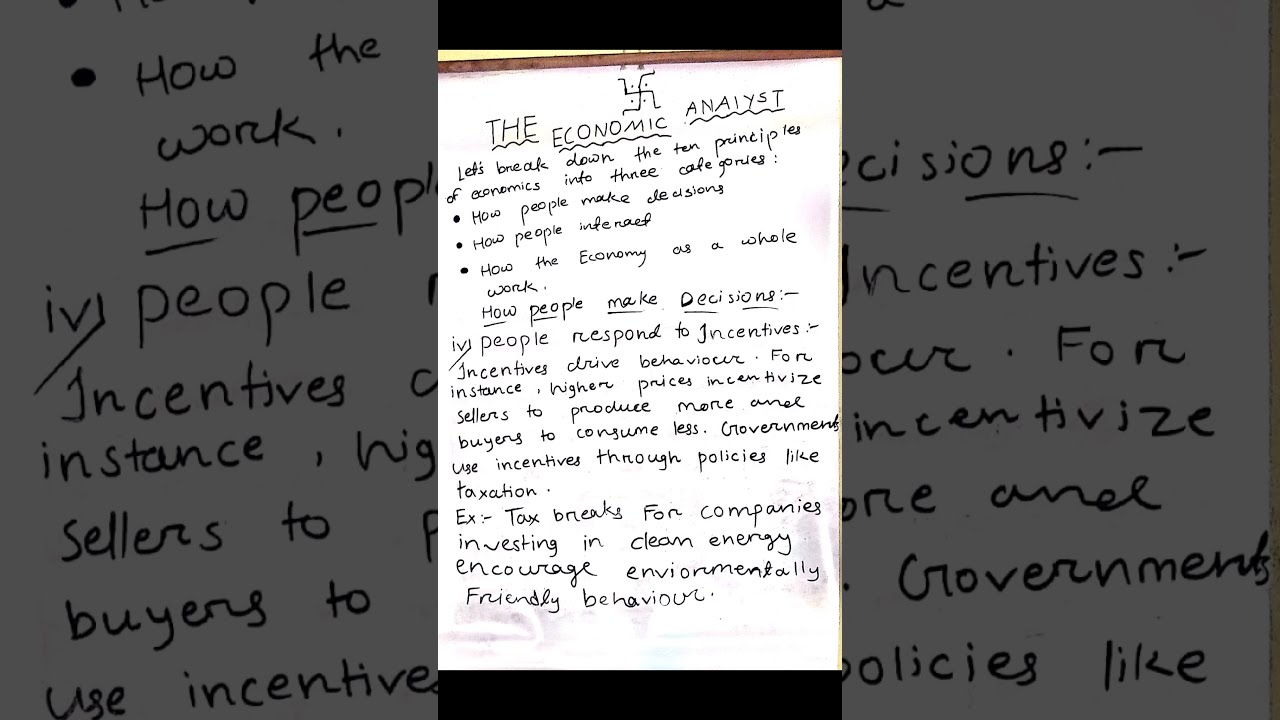 THE ECONOMIC ANALYST
Let's break down the ten principles
of economics into three categories:
• How people make decisions
• How people interact
• How the Economy as a whole
work.
How people make Decisions:-
iv) people respond to Incentives:-
Incentives drive behaviour. For
instance, higher prices incentivize
sellers to produce more and
buyers to consume less. Governments
use incentives through policies like
taxation.
Ex:- Tax breaks For companies
investing in clean energy
encourage enviormentally
Friendly behaviour.